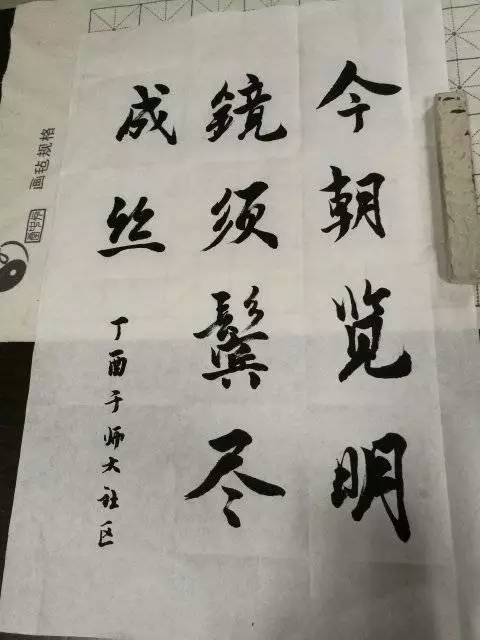 今朝览明
镜须鬓尽
成丝
丁酉于师大社区
画毡规格